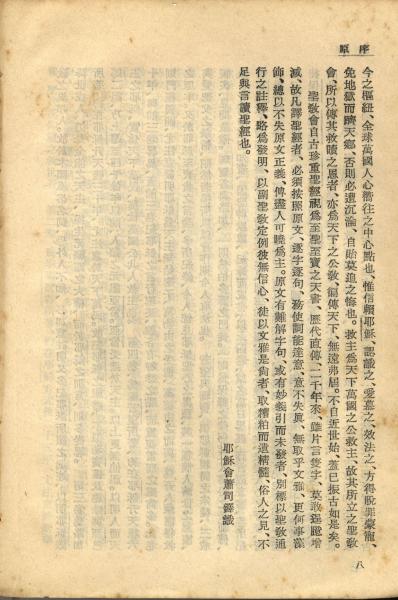 原序
今之樞紐、全球萬國人心嚮往之中心點也、惟信賴耶穌、認識之、愛慕之、效法之、方得脫罪蒙寵、
免地獄而躋天鄉、否則必遭沉淪、自貽莫追之悔也。救主爲天下萬國之公救主、故其所立之聖教
會、所以傳其救贖之恩者、亦爲天下之公教、徧傳天下、無遠弗屆。不自近世始、蓋已振古如是矣。
聖教會自古珍重聖經、視爲至聖至寶之天書、歷代直傳、二千年來、雖片言隻字、莫敢擅增
減、故凡譯聖經者、必須按照原文、逐字逐句、務使詞能達意、意不失眞、無取乎文雅、更何事藻
飾、總以不失原文正義、傳盡人可曉爲主。原文有難解字句、或有妙義引而未發者、則標以聖教通
行之註釋、略爲發明、以副聖教定例彼無信心、徒以文雅是尙者、取糟粕而遺精髓、俗人之見、不
足與言讀聖經也。
耶穌會蕭司鐸識